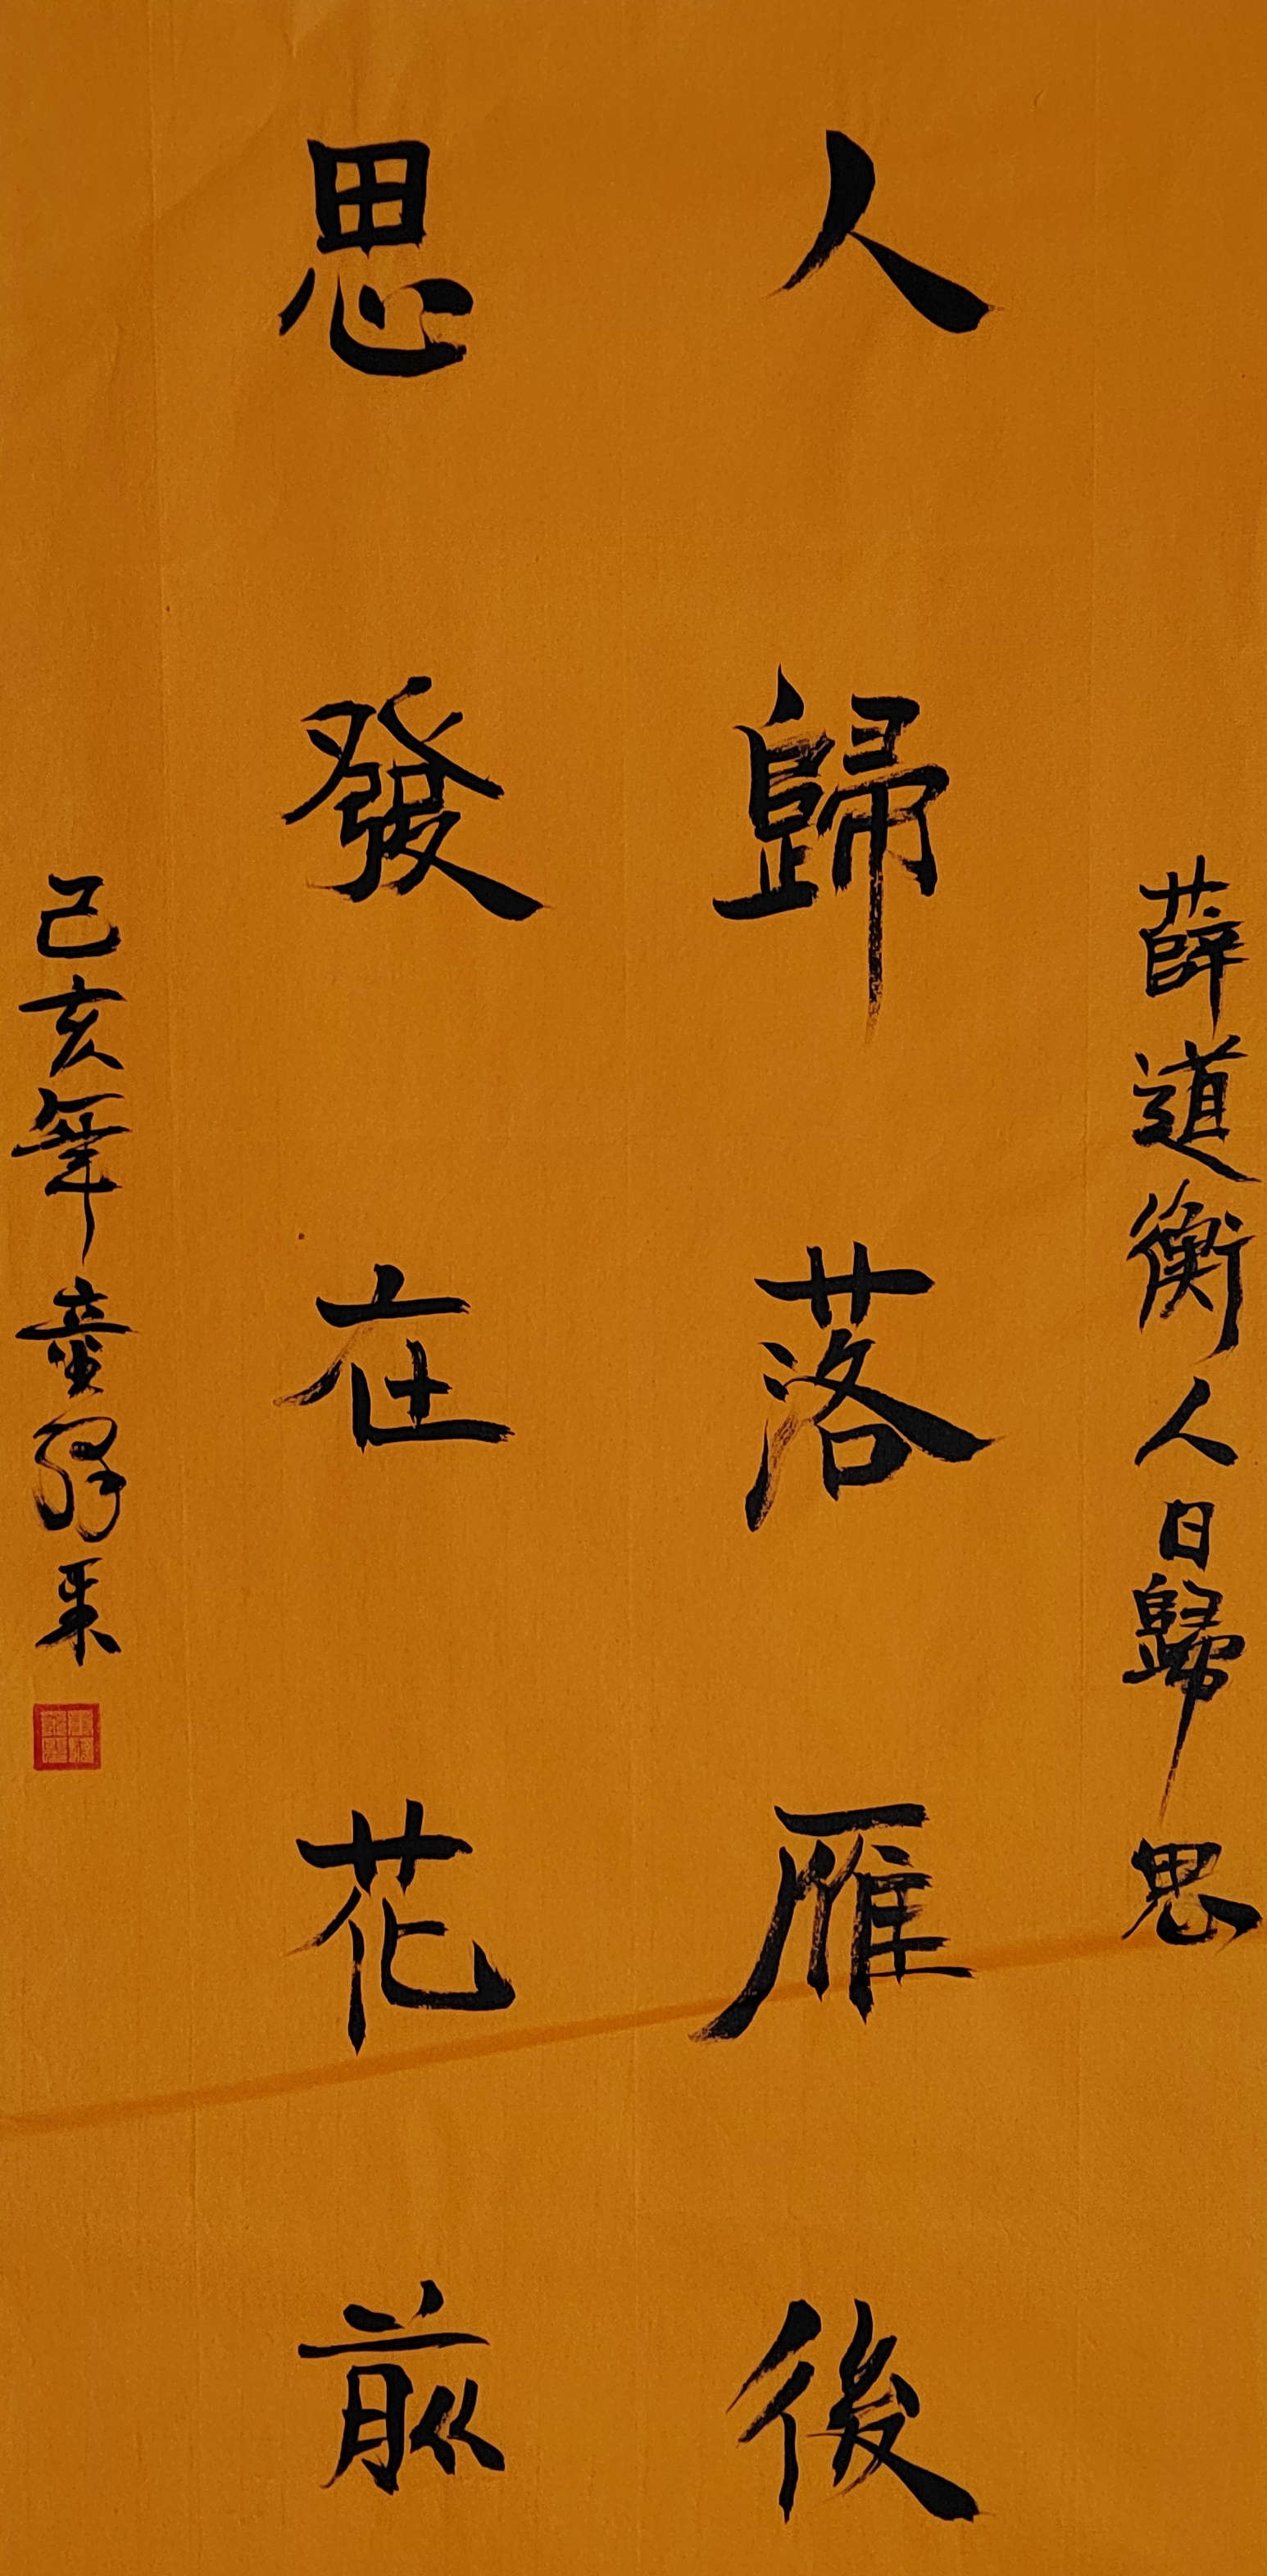 薛道衡人日歸思
人歸落雁後
思發在花前
己亥年